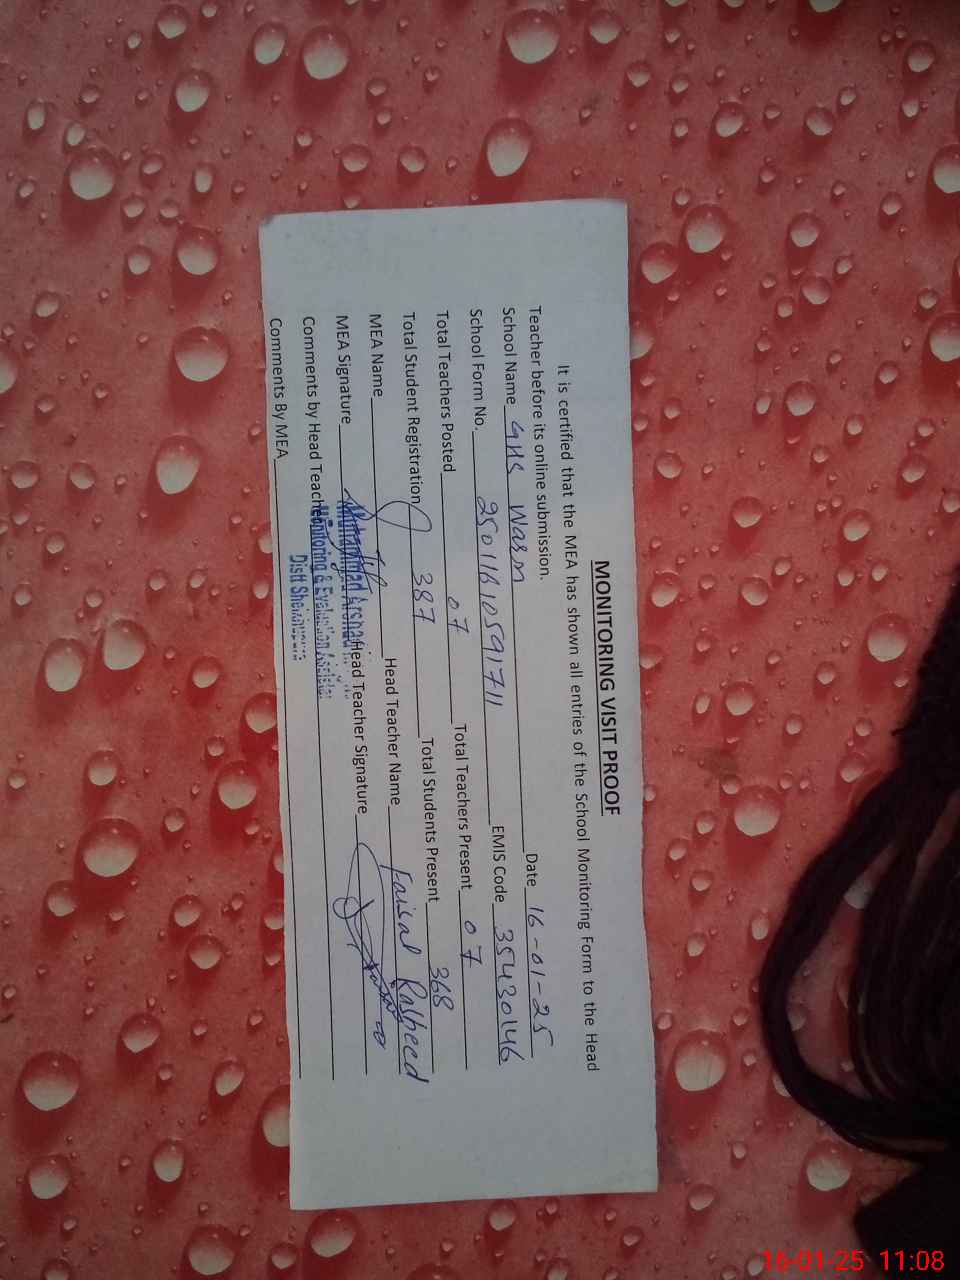 MONITORING VISIT PROOF
It is certified that the MEA has shown all entries of the School Monitoring Form to the Head
Teacher before its online submission.
School Name GHS Warn Date 16-01-25
School Form No. 25011610591711 EMIS Code 35430146
Total Teachers Posted 07 Total Teachers Present 07
Total Student Registration 387 Total Students Present 368
MEA Name Head Teacher Name Faisal Rasheed
MEA Signature Head Teacher Signature
Muhammad Arshad
Comments by Head Teacher
Monitoring & Evaluation Assistant
Distt Sheikhupura
Comments By MEA
16-01-25 11:08